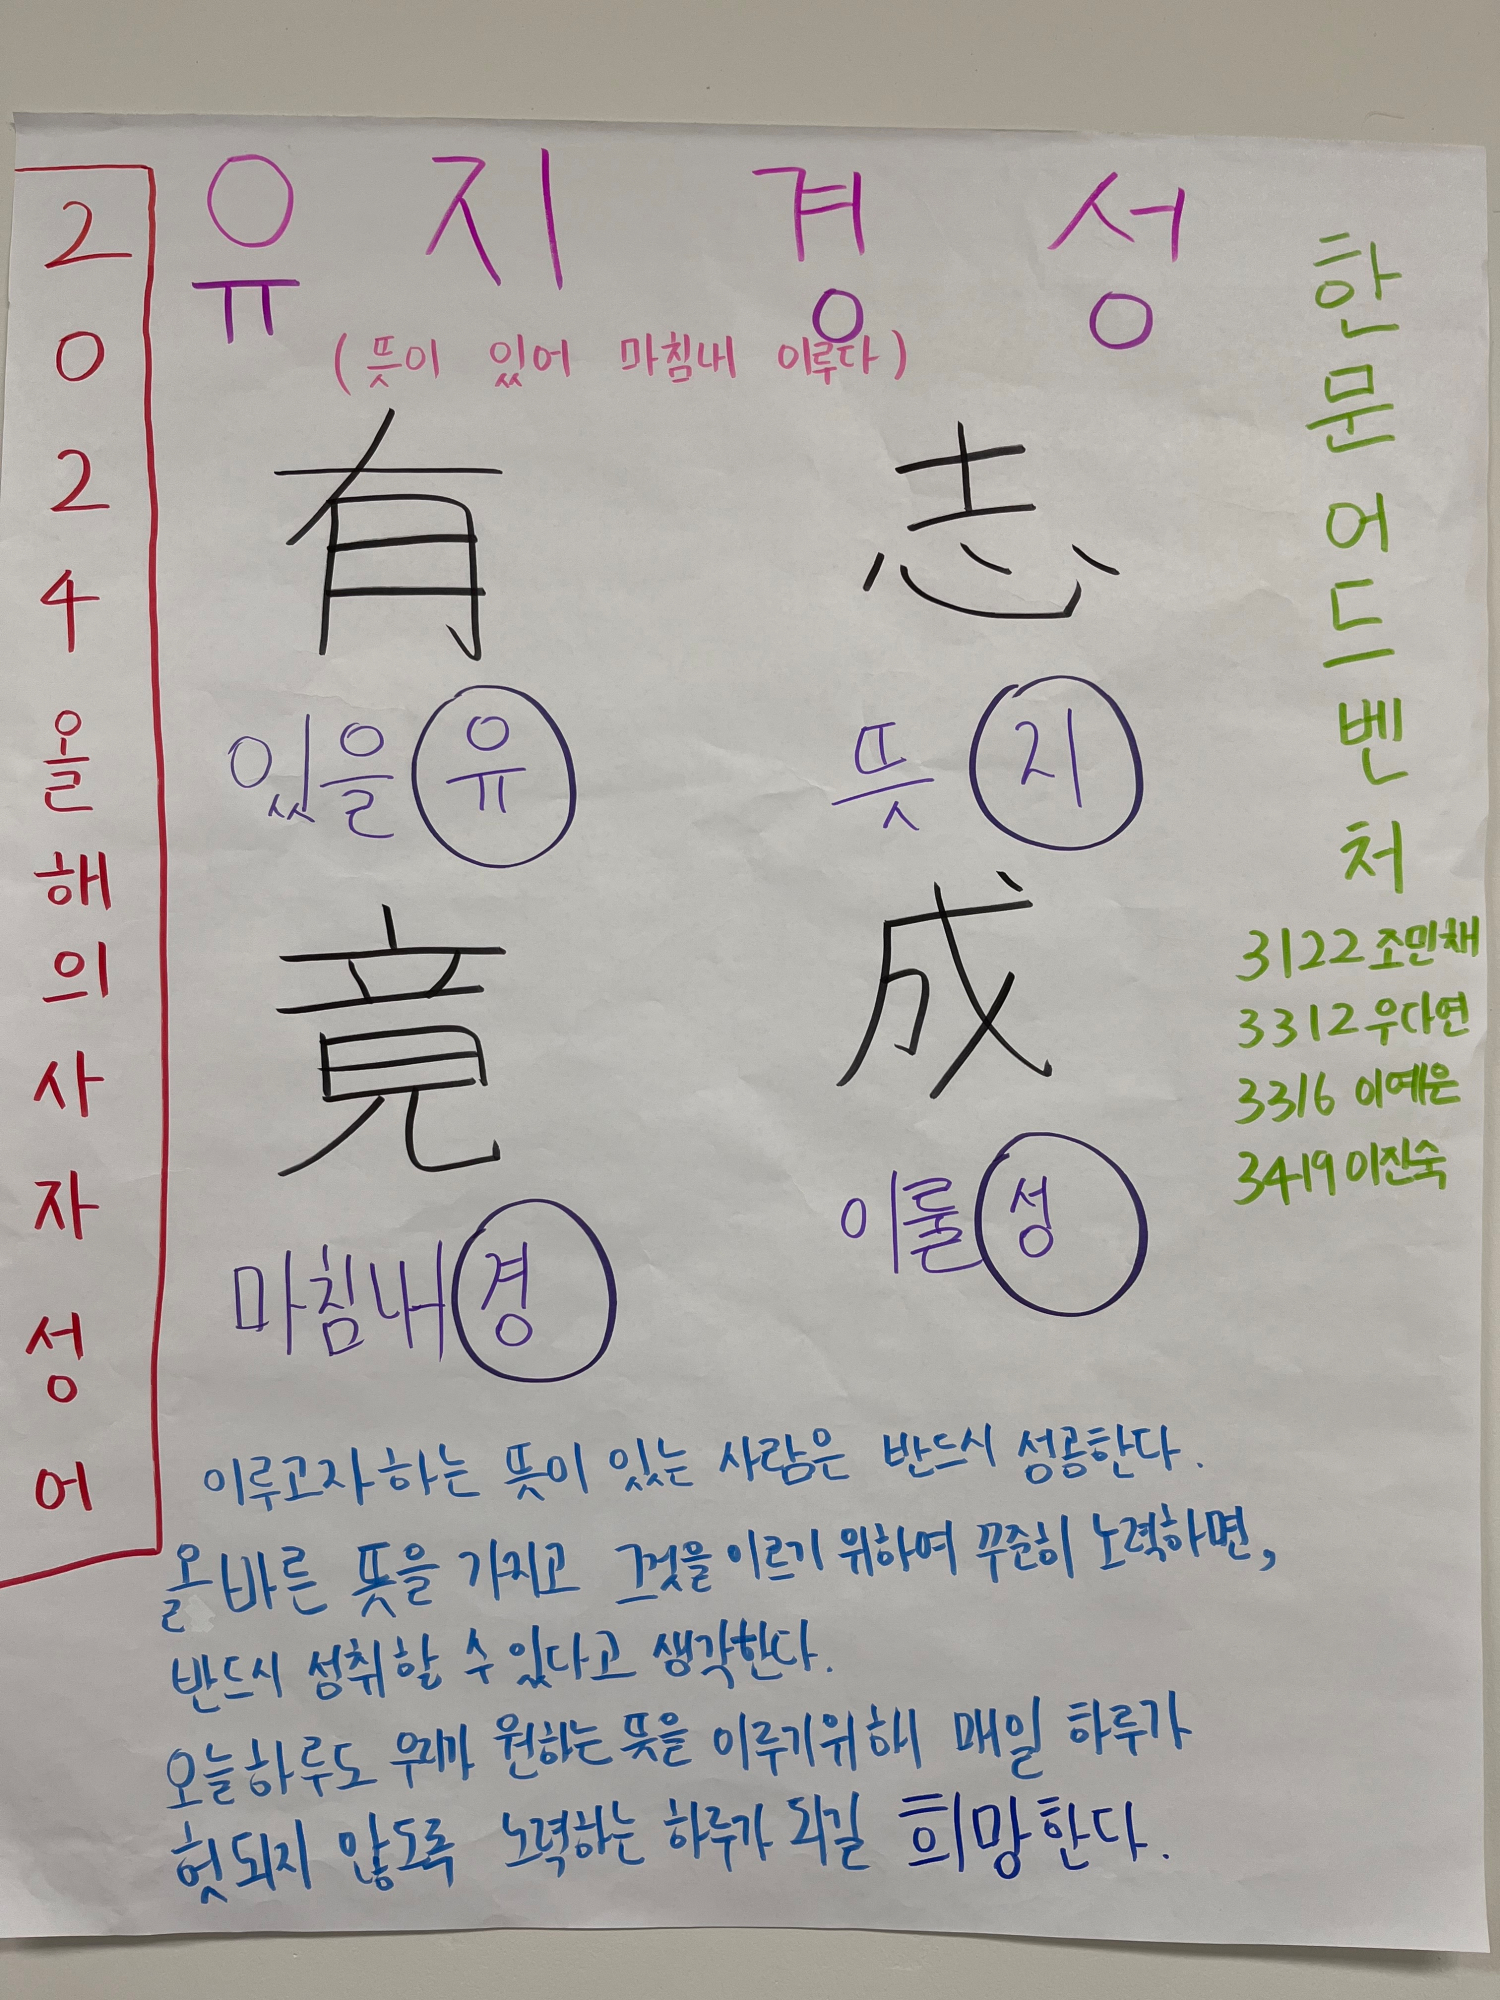 2024올해의사자성어
유지경성
(뜻이 있어 마침내 이루다)
有 志
있을 유 뜻 지
竟 成
마침내 경 이룰 성
한문 어드벤처
3122 조민채
3312 우다연
3316 이예은
3419 이진숙
이루고자 하는 뜻이 있는 사람은 반드시 성공한다.
올바른 뜻을 가지고 그것을 이르기 위하여 꾸준히 노력하면,
반드시 성취할 수 있다고 생각한다.
오늘하루도 우리가 원하는 뜻을 이루기위해 매일 하루가
헛되지 않도록 노력하는 하루가 되길 희망한다.